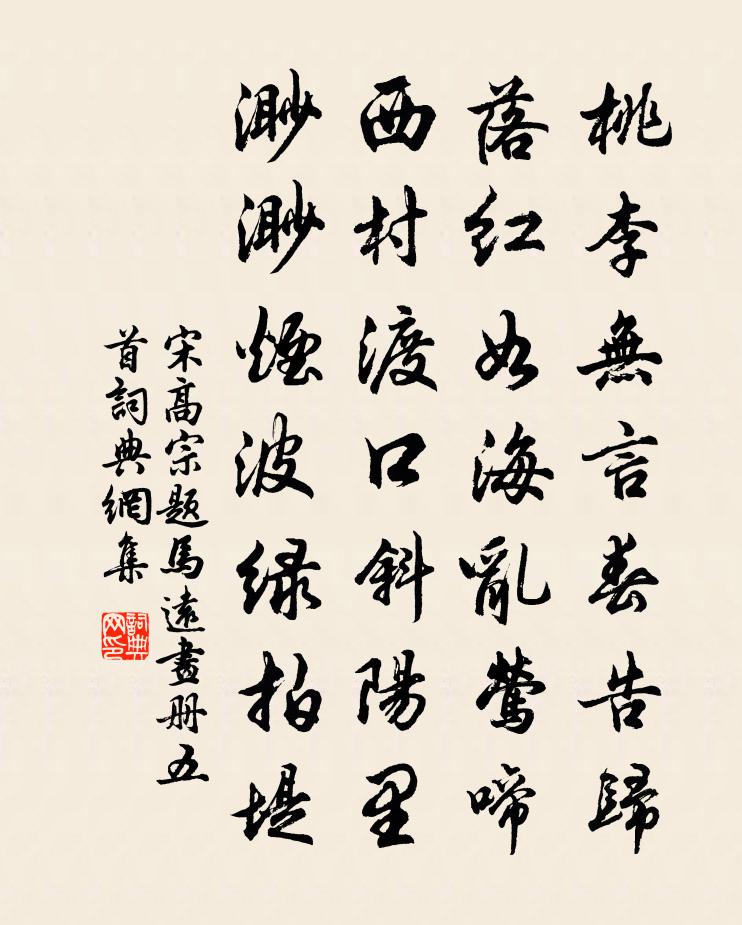 桃李無言春告歸
落紅如海亂鶯啼
西村渡口斜陽里
渺渺煙波绿拍堤
宋高宗題馬遠畫册五
首詞典網集
詞典
网印